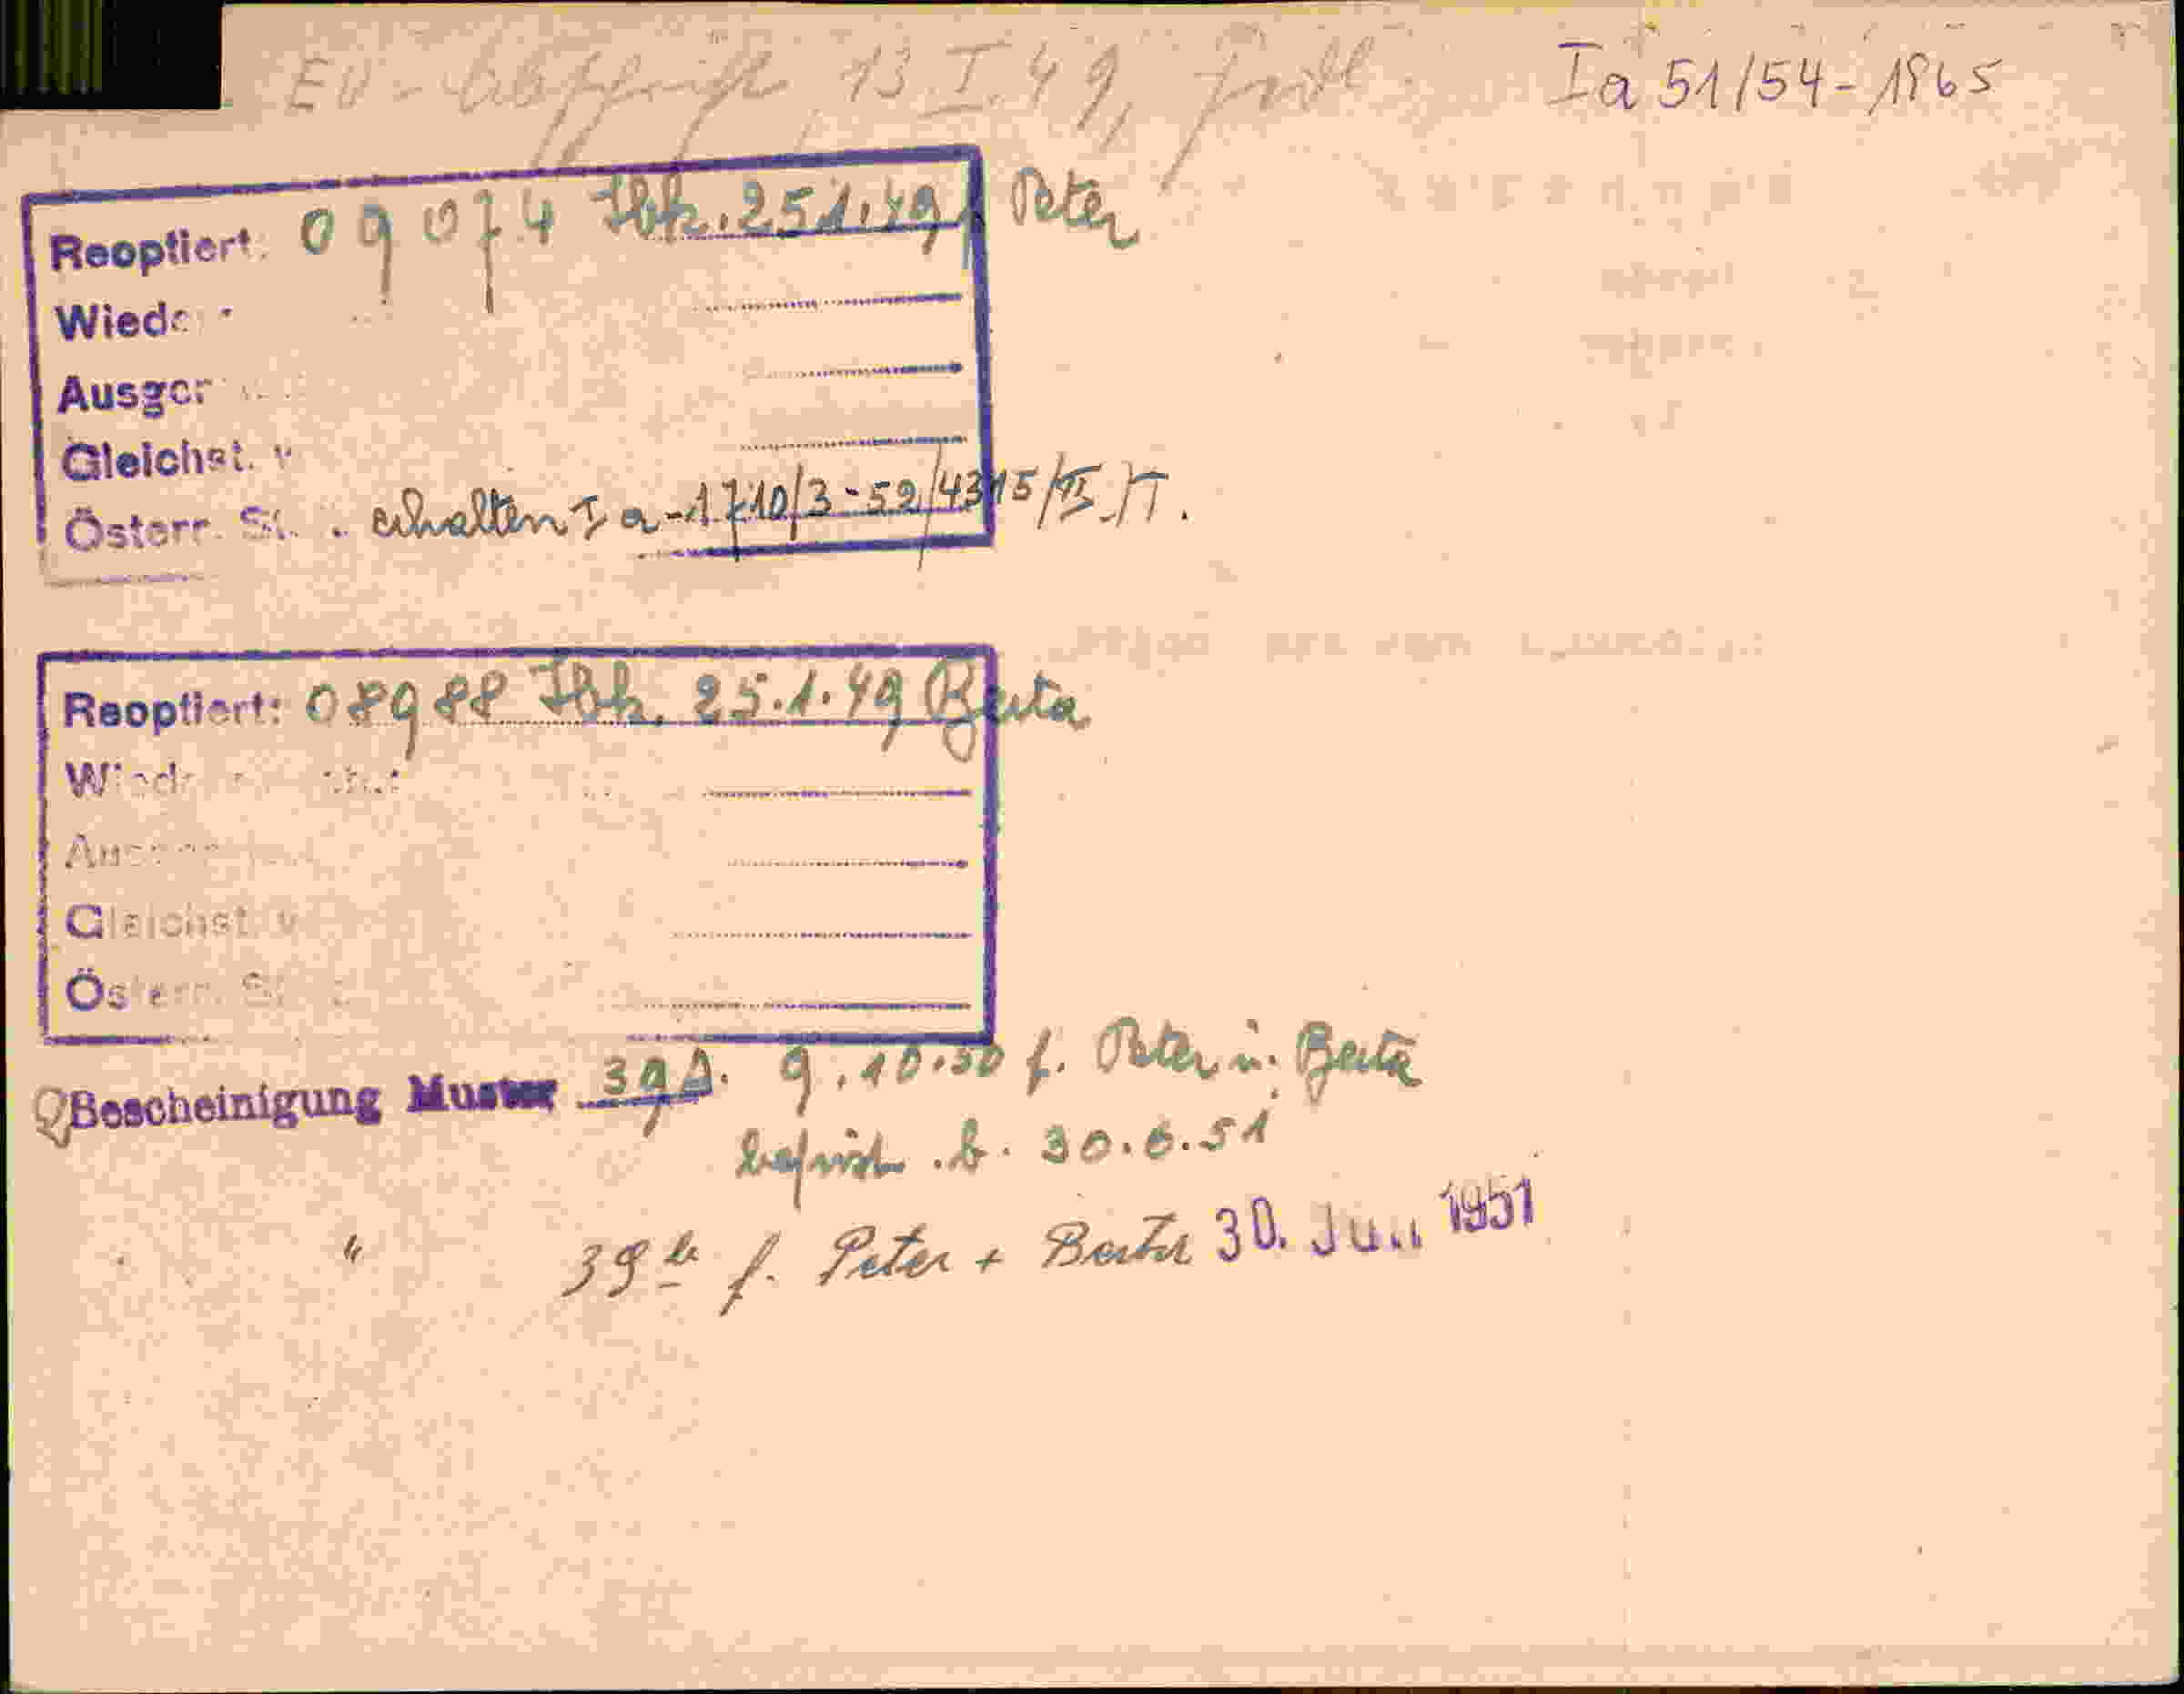 EU- 13.I.49, Ia 51/54-1965
Reoptiert: 09074 Ibk. 25.1.49 Peter
Wied
Ausge
Gleichst. v
Österr. St. erhalten Ia-1710/3-52/4315/II./T.
Reoptiert: 08988 Ibk. 25.1.49 Berta
Wied
Gleichst. v
Österr. S
Bescheinigung Muster 39A. 9.10.50 f. Peter u. Berta
befrist. b. 30.6.51
" 39b f. Peter + Berta 30. Juni 1951